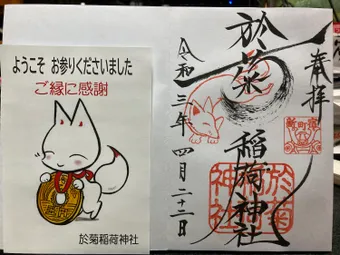 ようこそ お参りくださいました
ご縁に感謝
於菊稲荷神社
奉拝
於菊稲荷神社
令和三年四月二十二日
於菊
稲荷
神社